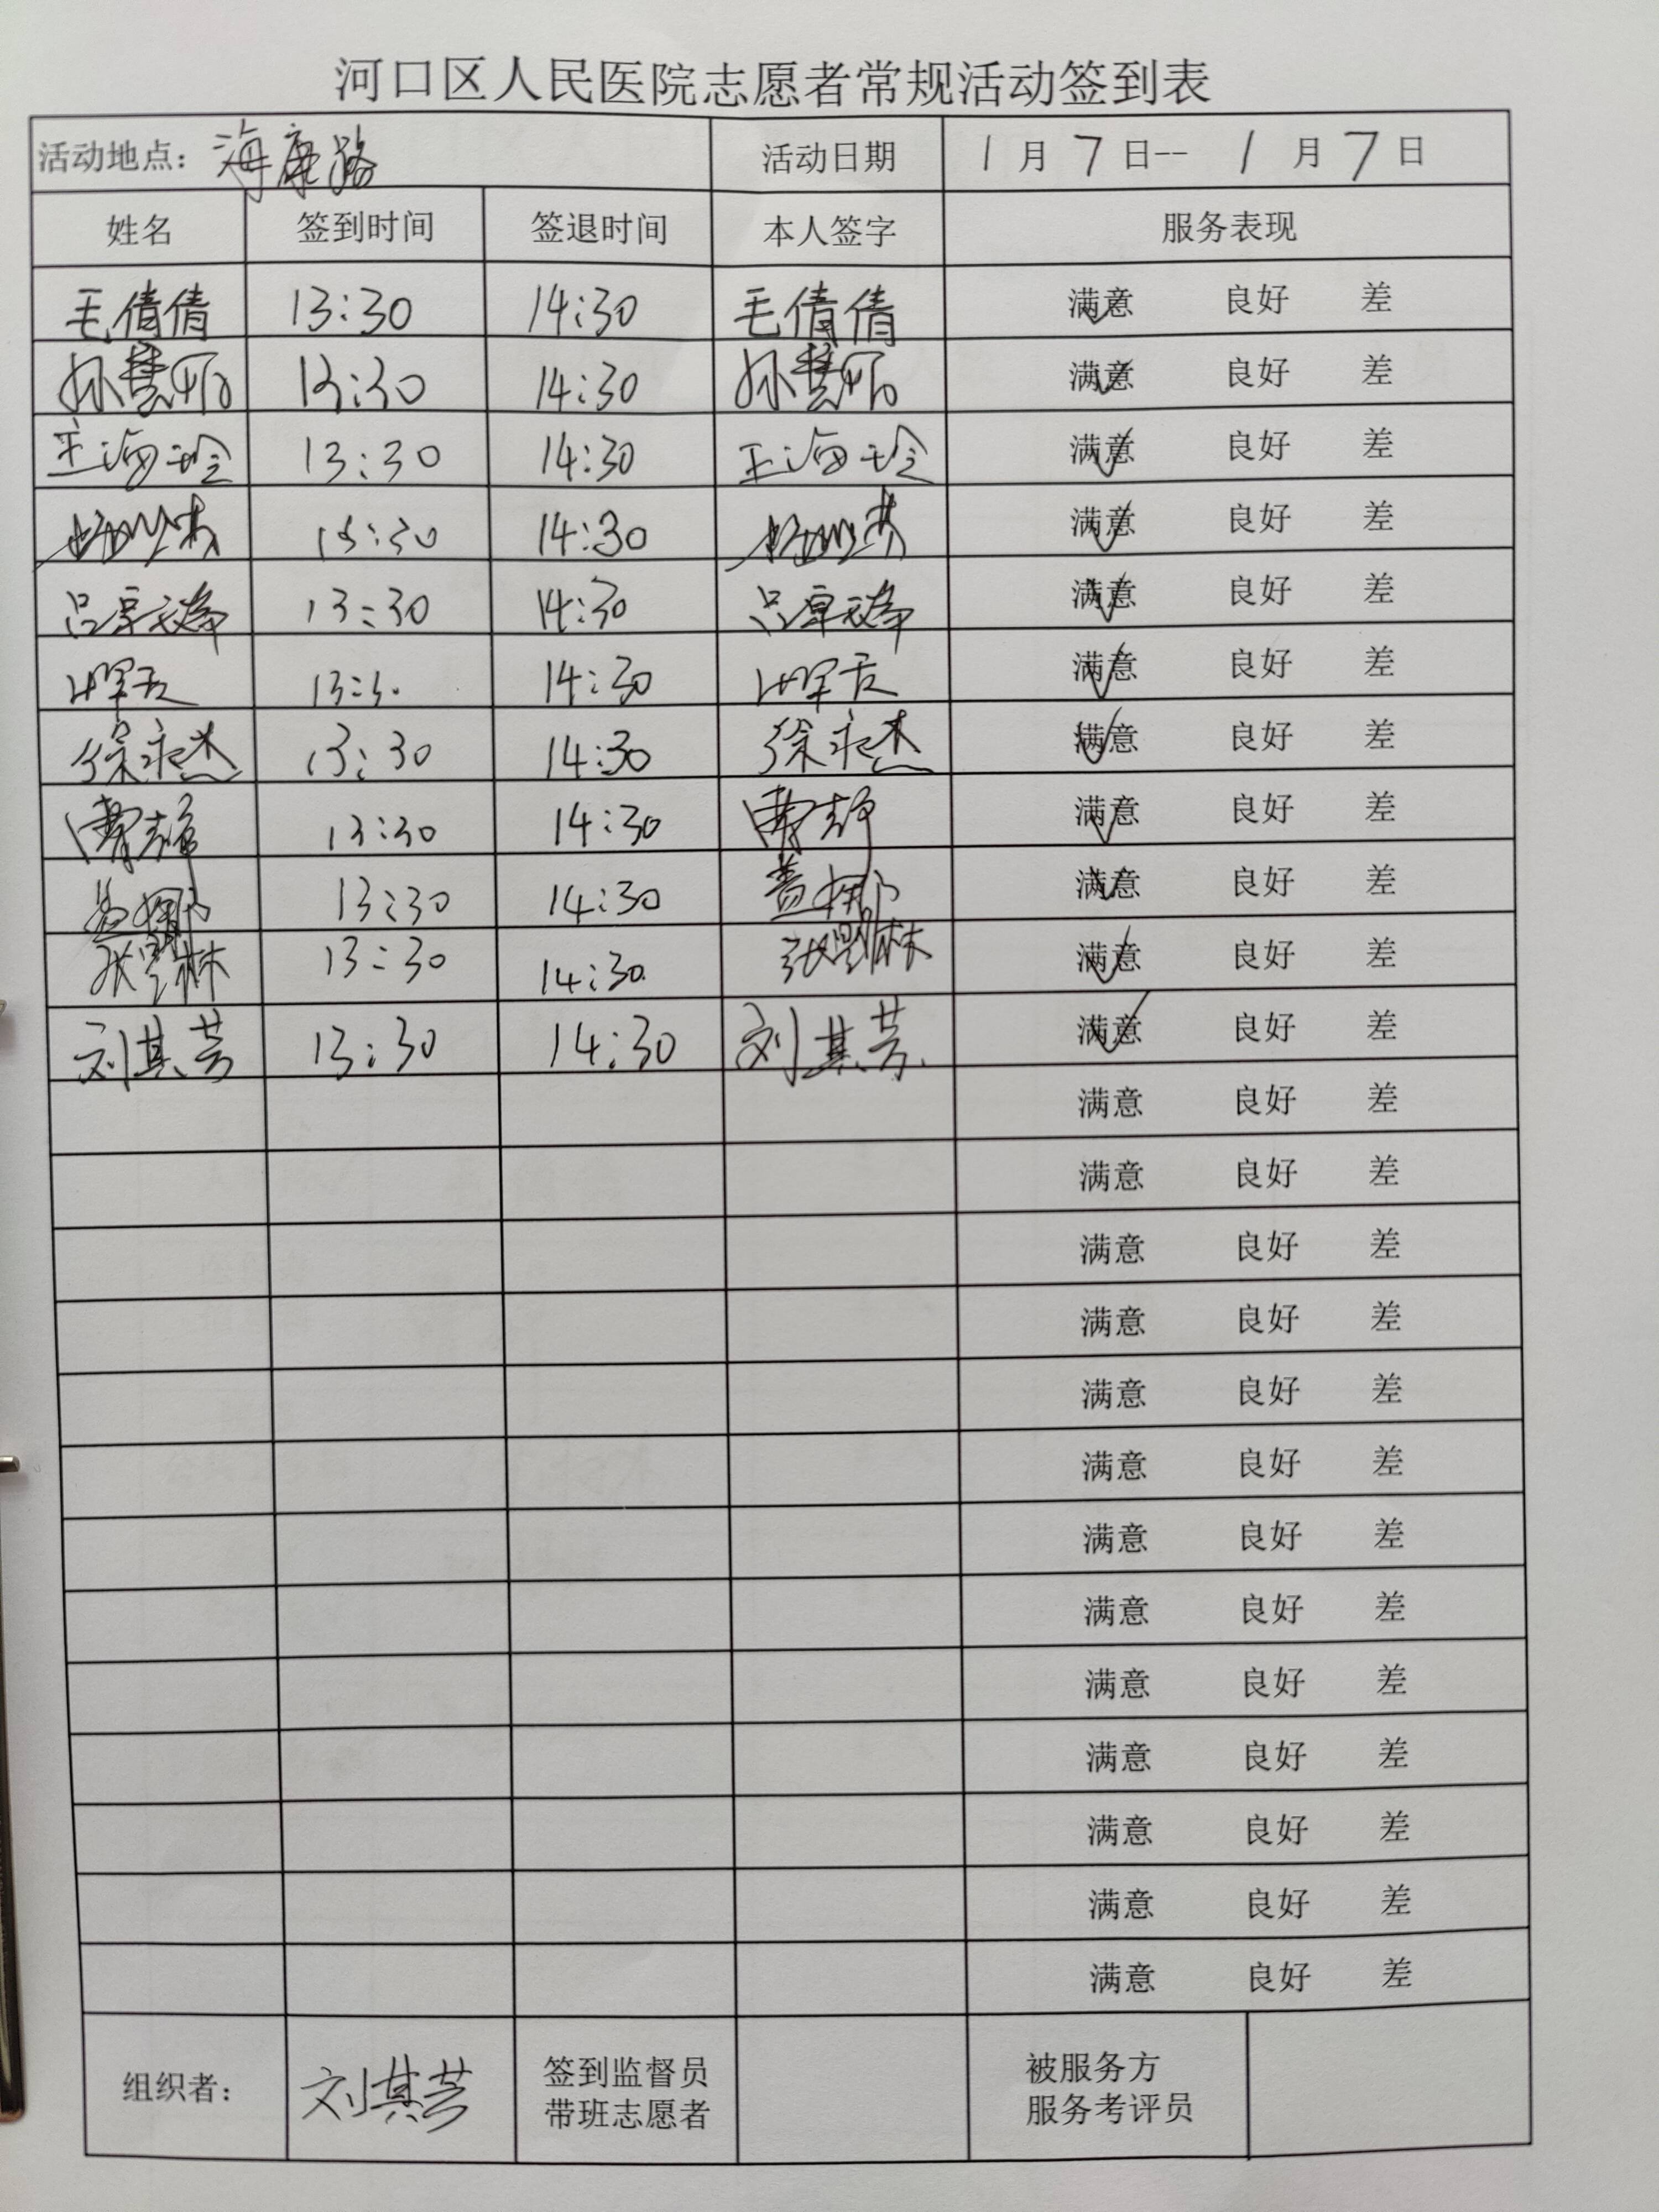 河口区人民医院志愿者常规活动签到表
活动地点：海康路 活动日期 1月7日--1月7日
姓名 签到时间 签退时间 本人签字 服务表现
毛倩倩 13:30 14:30 毛倩倩 满意 良好 差
孙慧 13:30 14:30 孙慧 满意 良好 差
王海玲 13:30 14:30 王海玲 满意 良好 差
13:30 14:30 满意 良好 差
吕 13:30 14:30 吕 满意 良好 差
13:30 14:30 满意 良好 差
徐永杰 13:30 14:30 徐永杰 满意 良好 差
曹静 13:30 14:30 曹静 满意 良好 差
盖娜 13:30 14:30 盖娜 满意 良好 差
张 林 13:30 14:30 张 林 满意 良好 差
刘其芸 13:30 14:30 刘其芸 满意 良好 差
满意 良好 差
满意 良好 差
满意 良好 差
满意 良好 差
满意 良好 差
满意 良好 差
满意 良好 差
满意 良好 差
满意 良好 差
满意 良好 差
满意 良好 差
满意 良好 差
满意 良好 差
组织者： 刘其芸 签到监督员 被服务方
带班志愿者 服务考评员